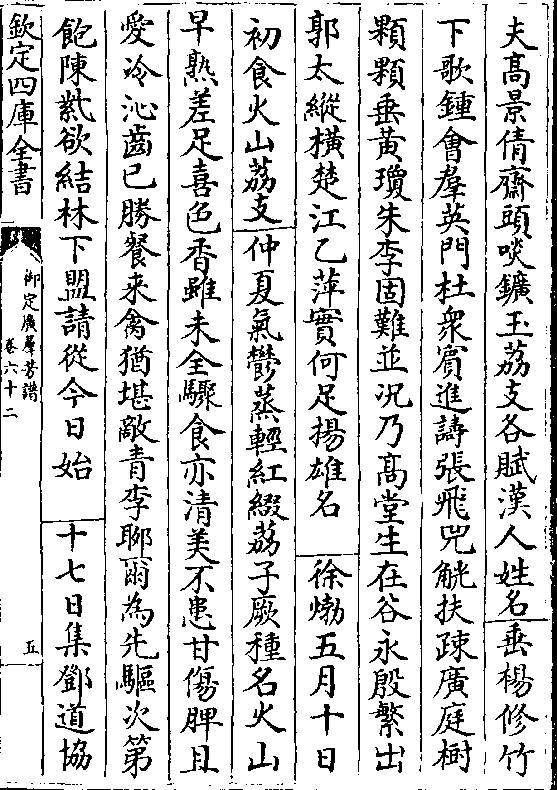 夫髙景倩齋頭啖鑛玉荔支各賦漢人姓名垂楊修竹
下歌鍾會羣英門杜衆賓進譸張飛兕觥扶疎廣庭樹
顆顆垂黃瓊朱李固難並况乃髙堂生在谷永殷繁出
郭太縱橫楚江乙萍實何足揚雄名 徐𤊹五月十日
初食火山荔支仲夏氣鬱蒸輕紅綴荔子厥種名火山
早熟差足喜色香雖未全驟食亦清美不患甘傷脾且
愛冷沁齒已勝餐來禽猶堪敵青李聊爾為先驅次第
飽陳紫欲結林下盟請從今日始 十七日集鄧道協
欽定四庫全書
御定廣羣芳譜
卷六十二
五